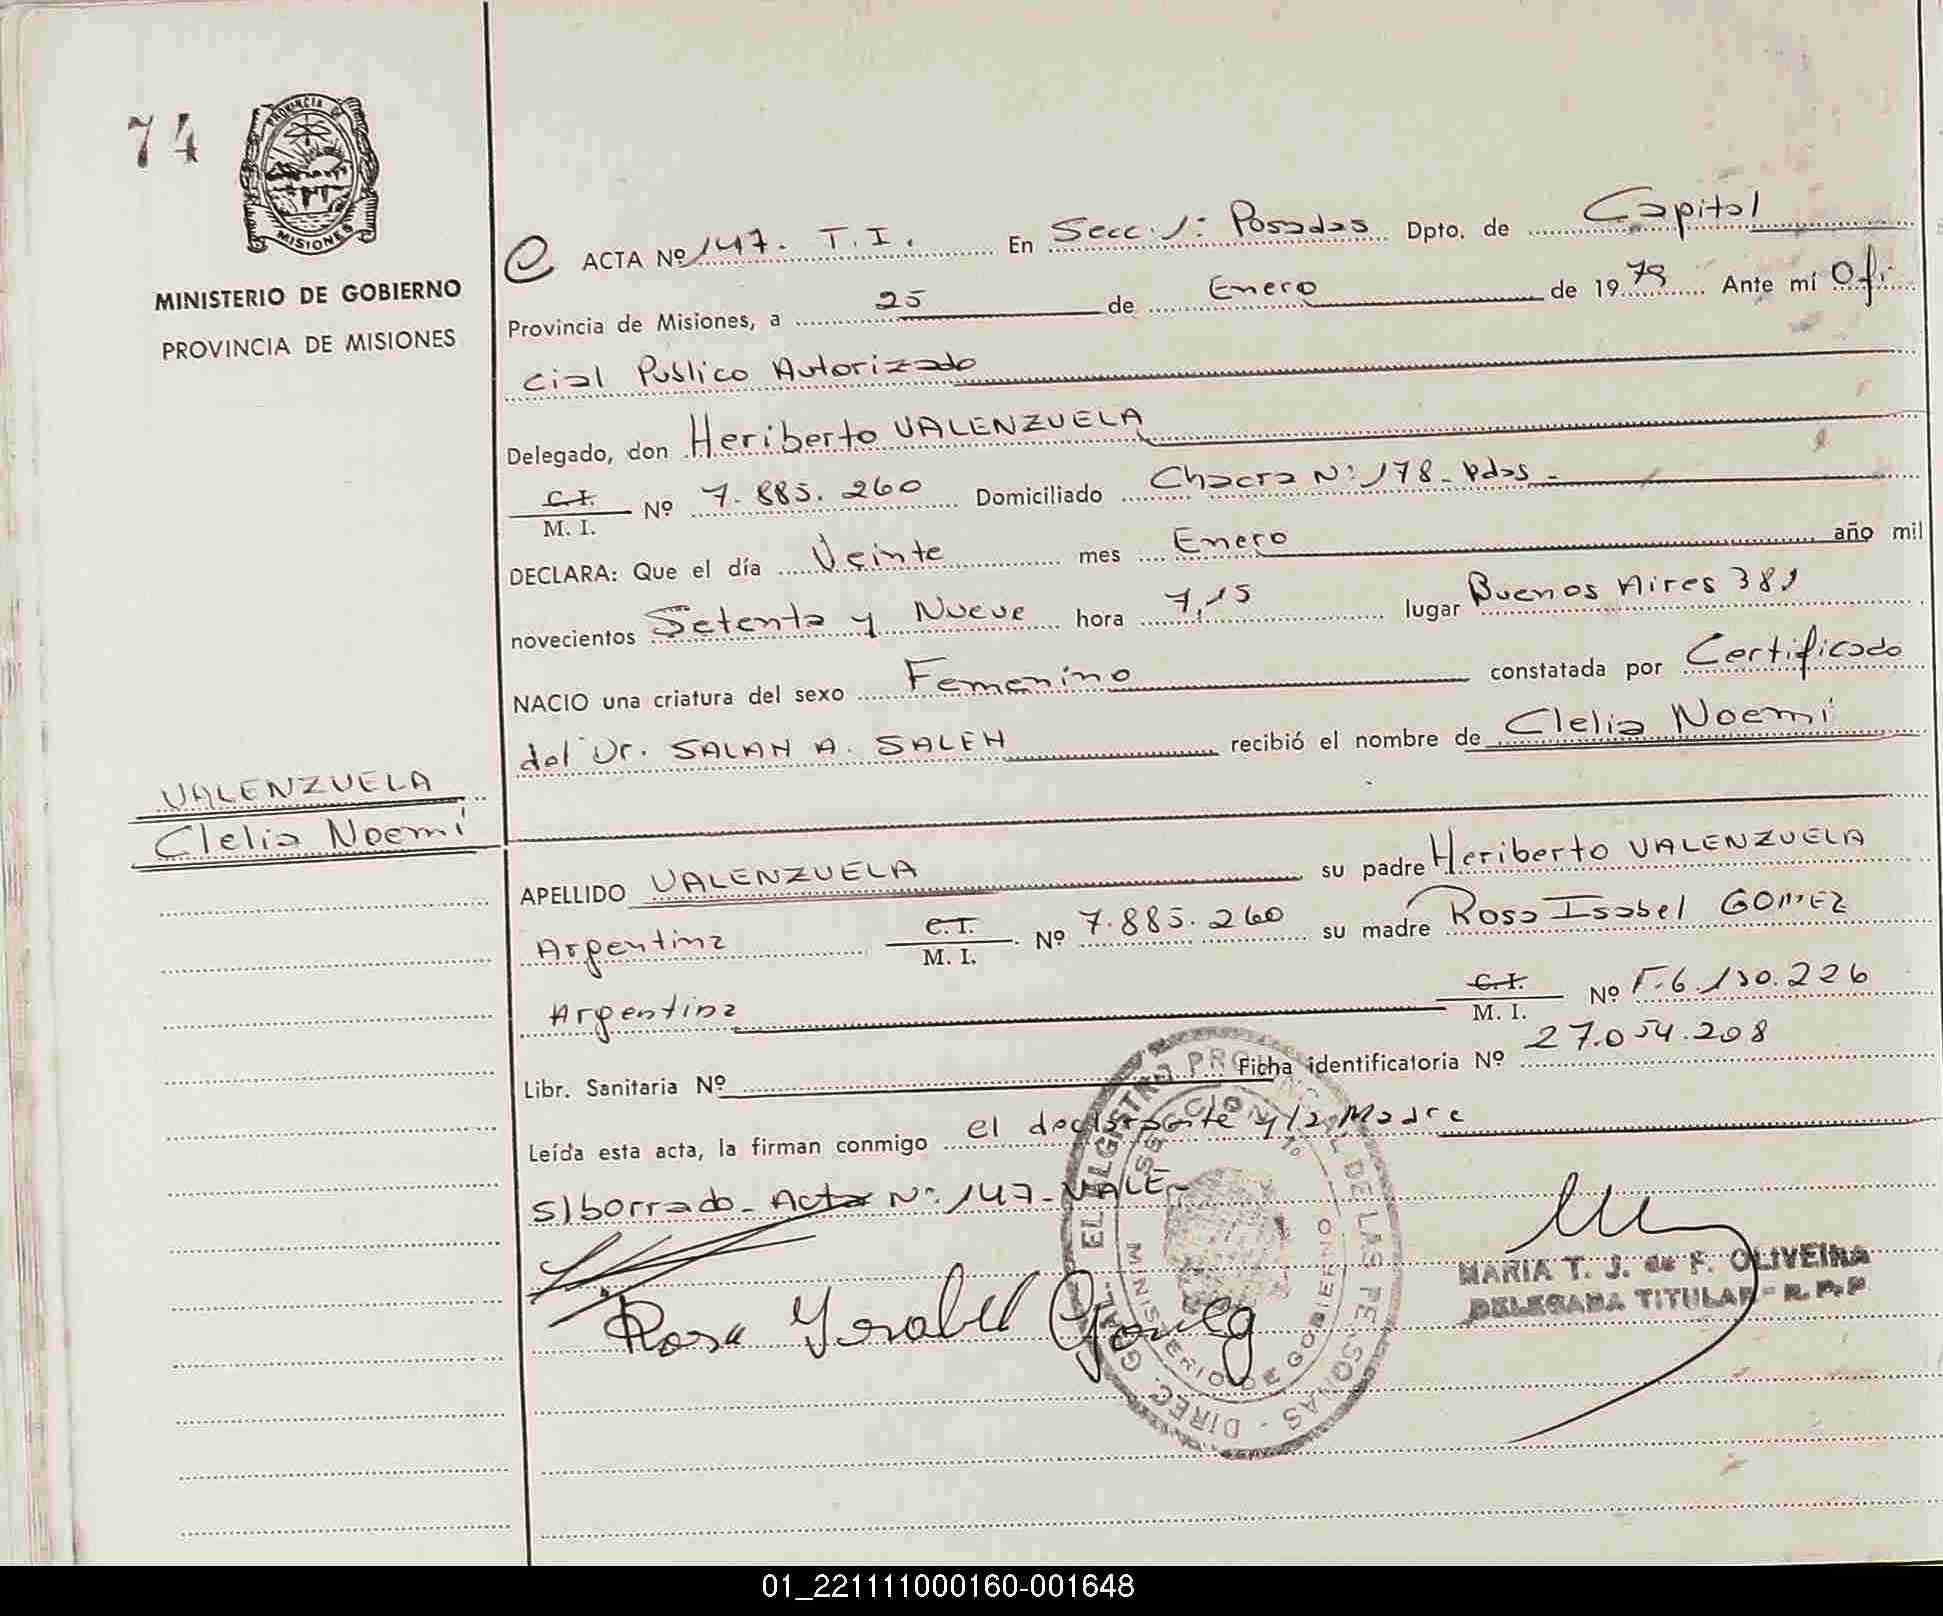 74
PROVINCIA DE
MISIONES
MINISTERIO DE GOBIERNO
PROVINCIA DE MISIONES
ACTA Nº 147. T.I. En Secc. 1: Posadas Dpto. de Capital
Provincia de Misiones, a 25 de Enero de 1979 Ante mí Ofi
cial Publico Autorizado
Delegado, don Heriberto VALENZUELA
C.I. M. I. Nº 7.885.260 Domiciliado Chacra Nº: 178- Pdas-
DECLARA: Que el día Veinte mes Enero año mil
novecientos Setenta y Nueve hora 7,15 lugar Buenos Aires 381
NACIO una criatura del sexo Femenino constatada por Certificado
del Dr. SALAN A. SALEH recibió el nombre de Clelia Noemi
VALENZUELA
Clelia Noemi
APELLIDO VALENZUELA su padre Heriberto VALENZUELA
Argentina C.I. M. I. Nº 7.885.260 su madre Rosa Isabel GOMEZ
Argentina C.I. M. I. Nº F.6.130.226
Libr. Sanitaria Nº Ficha identificatoria Nº 27.054.208
Leída esta acta, la firman conmigo el declarante y la Madre
S/borrado- Acta Nº: 147- VALE-
Rosa Ysabel Gomez
MARIA T. J. de F. OLIVEIRA
DELEGADA TITULAR - R. P. P.
DIREC. GRAL. EL REGISTRO PROVINCIAL DE LAS PERSONAS -
SECCION 1º
MINISTERIO DE GOBIERNO
01_221111000160-001648